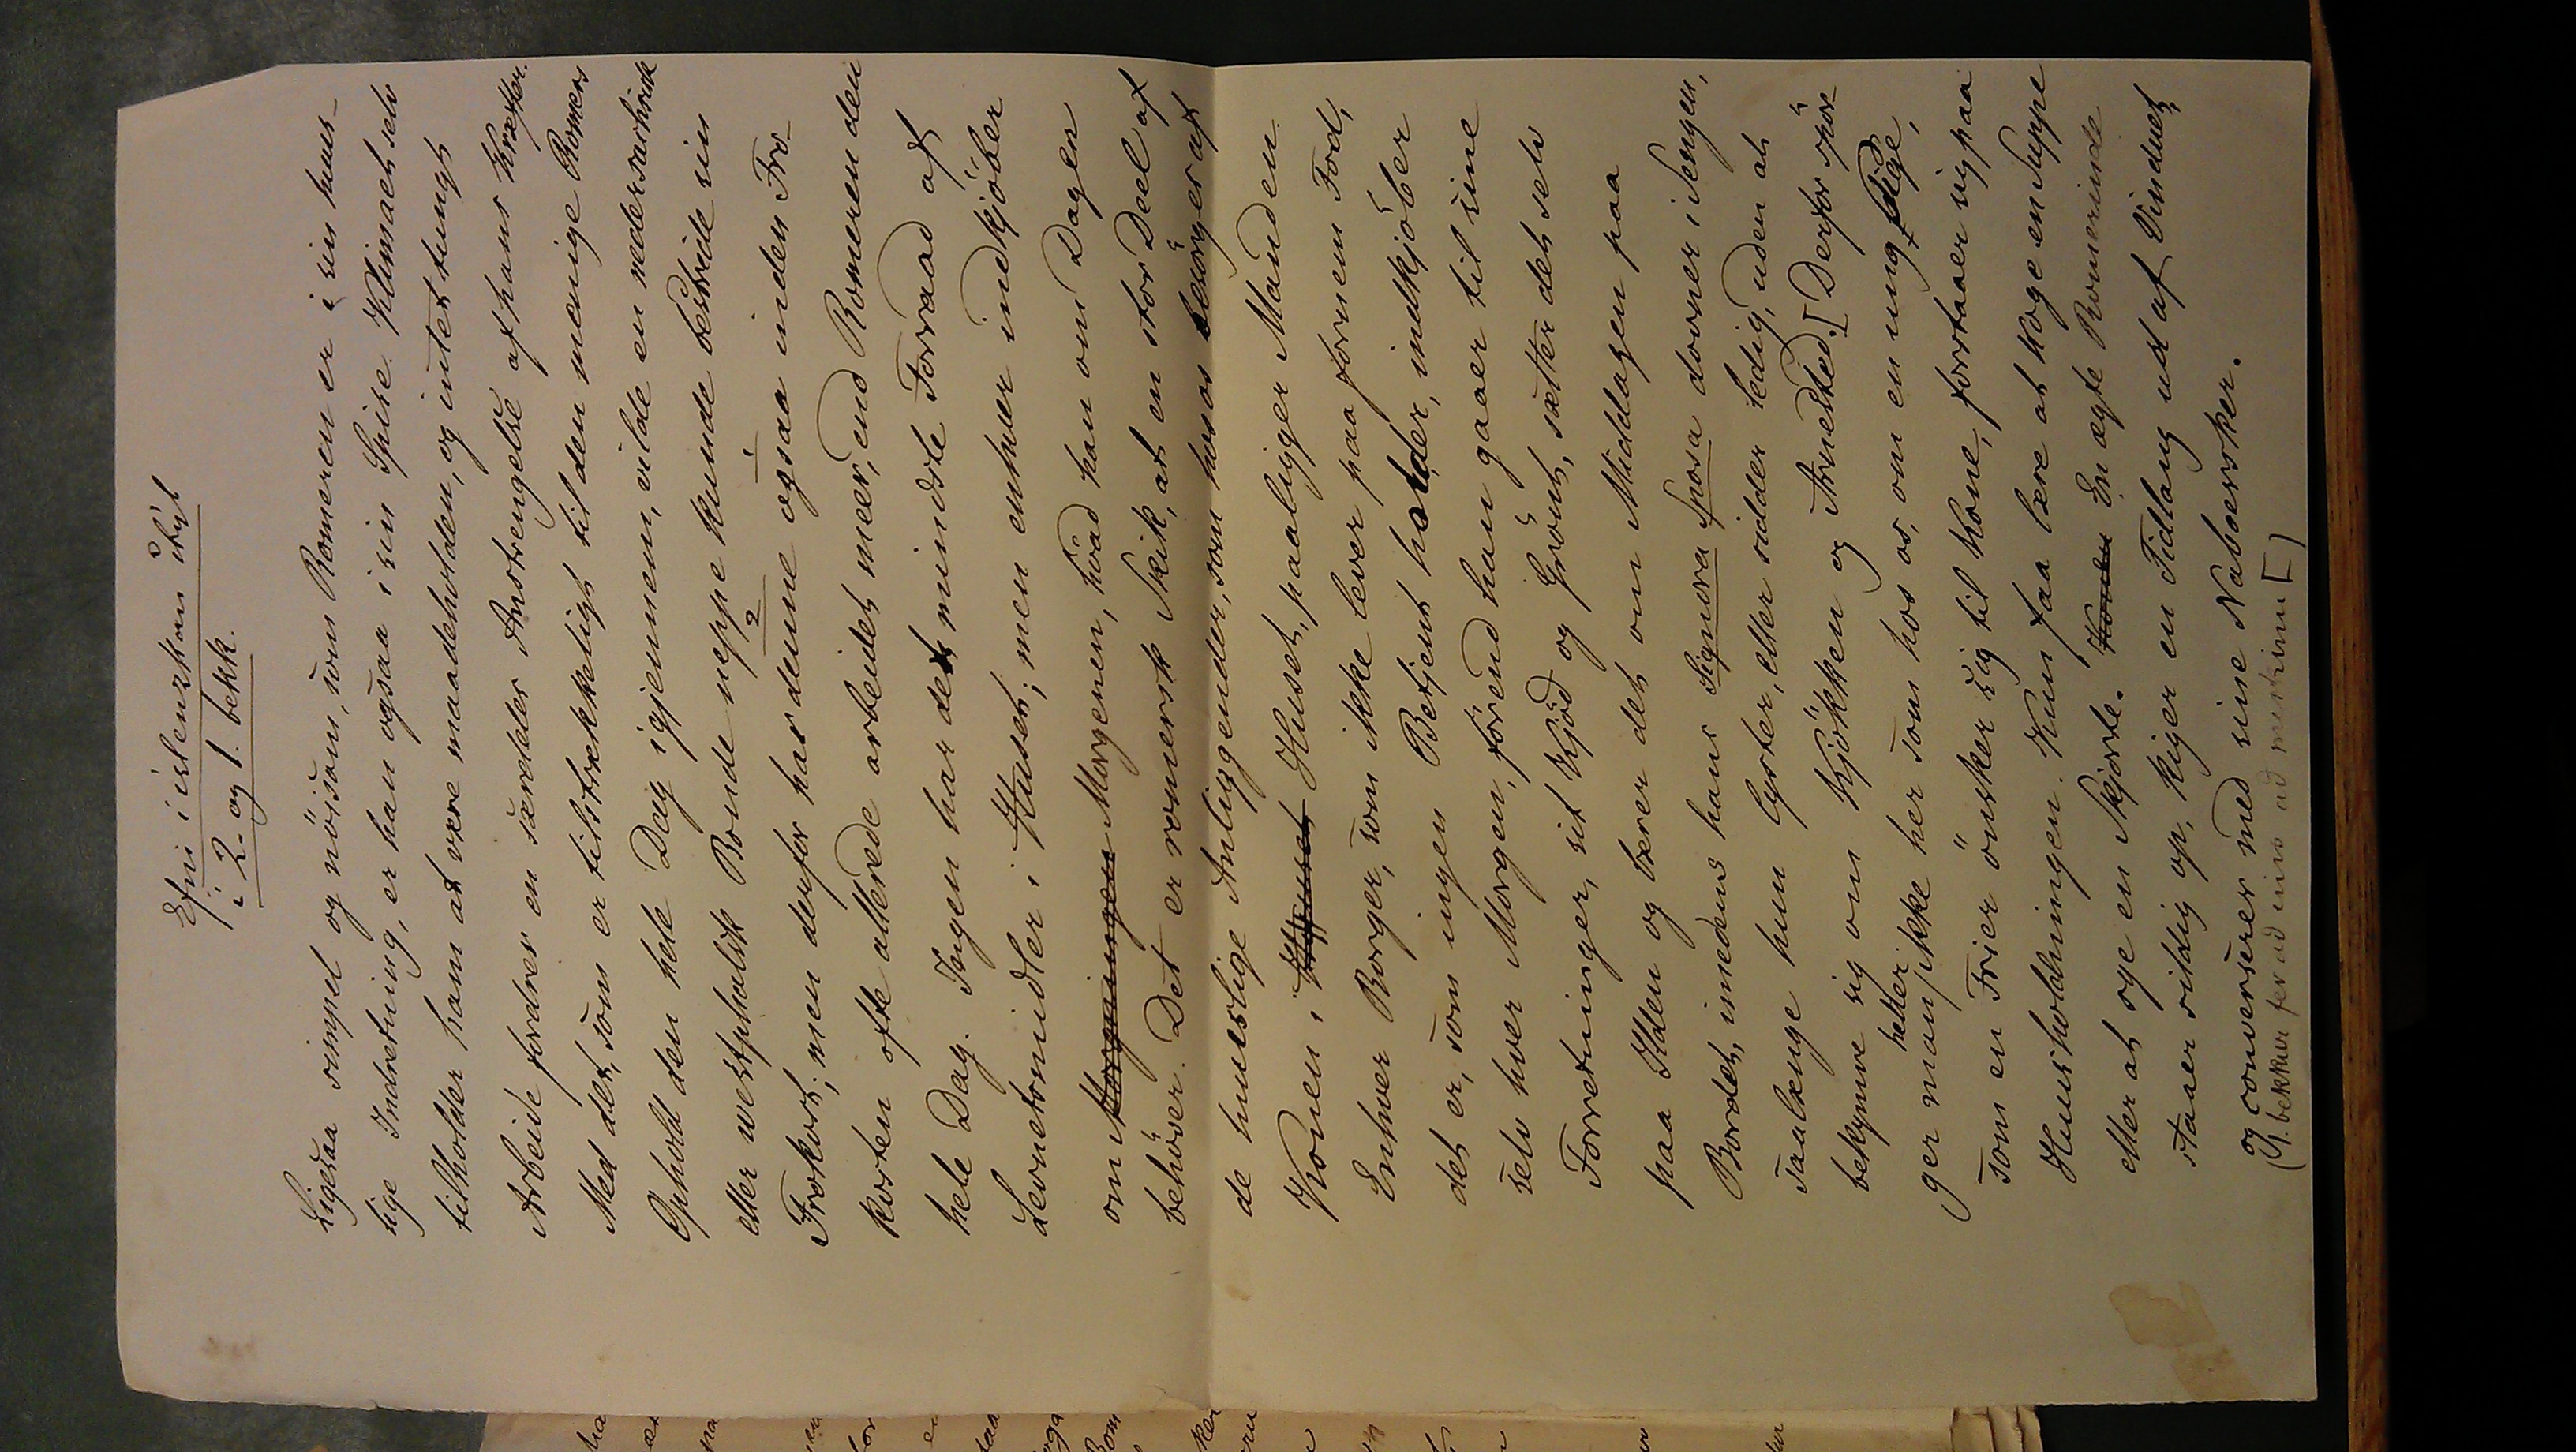 Efni i íslenzkan stýl
i 2. og 1. bekk.
Ligesaa simpel og nöisom, som Romeren er i sin huus-
lige Indretning, er han ogsaa i sin Spise. Klimaet selv
tilholder ham at være maadeholden, og intet tungt
Arbeide fordrer en særdeles Anstrengelse af hans Kræfter.
Med det, som er tilstrækkeligt til den menige Romers
Ophold den hele Dag igjennem, vilde en nedersachsisk
eller westphalsk Bonde neppe kunde bestride sin
Frokost; men derfor har denne ogsaa inden Fro-
kosten ofte allerede arbeidet meer, end Romeren den
hele Dag. Ingen har det mindste Forraad af
Levnetsmidler i Huset; men enhver indkjöber
om Morgningen Morgenen, hvad han om Dagen
behöver. Det er romersk Skik, at en stor Deel af
de huuslige Anliggender, som hos os besörges af
Konen i Huuset Huset, paaligger Manden.
Enhver Borger, som ikke lever paa fornem Fod,
det er, som ingen Betjent holder, indkjöber
selv hver Morgen, förend han gaaer til sine
Forretninger, sit Kjöd og Grönt, sætter det selv
paa Ilden og bærer det om Middagen paa
Bordet, imedens hans Signora Sposa dovner i Sengen,
saalænge hun lyster, eller sidder ledig, uden at
bekymre sig om Kjökken og Arnested. [Derfor spör-
ger man heller ikke her som hos os, om en ung Pige,
som en Frier önsker sig til Kone, forstaaer sig paa
Huusholdningen. Kun faa lære at koge en Suppe
eller at sye en Skjorte. Konen En ægte Romerinde
staaer sildig op, kiger en Tidlang ud af Vinduet,
og converserer med sine Naboersker.
(1. bekkur fer ad eins ad merkinu [)